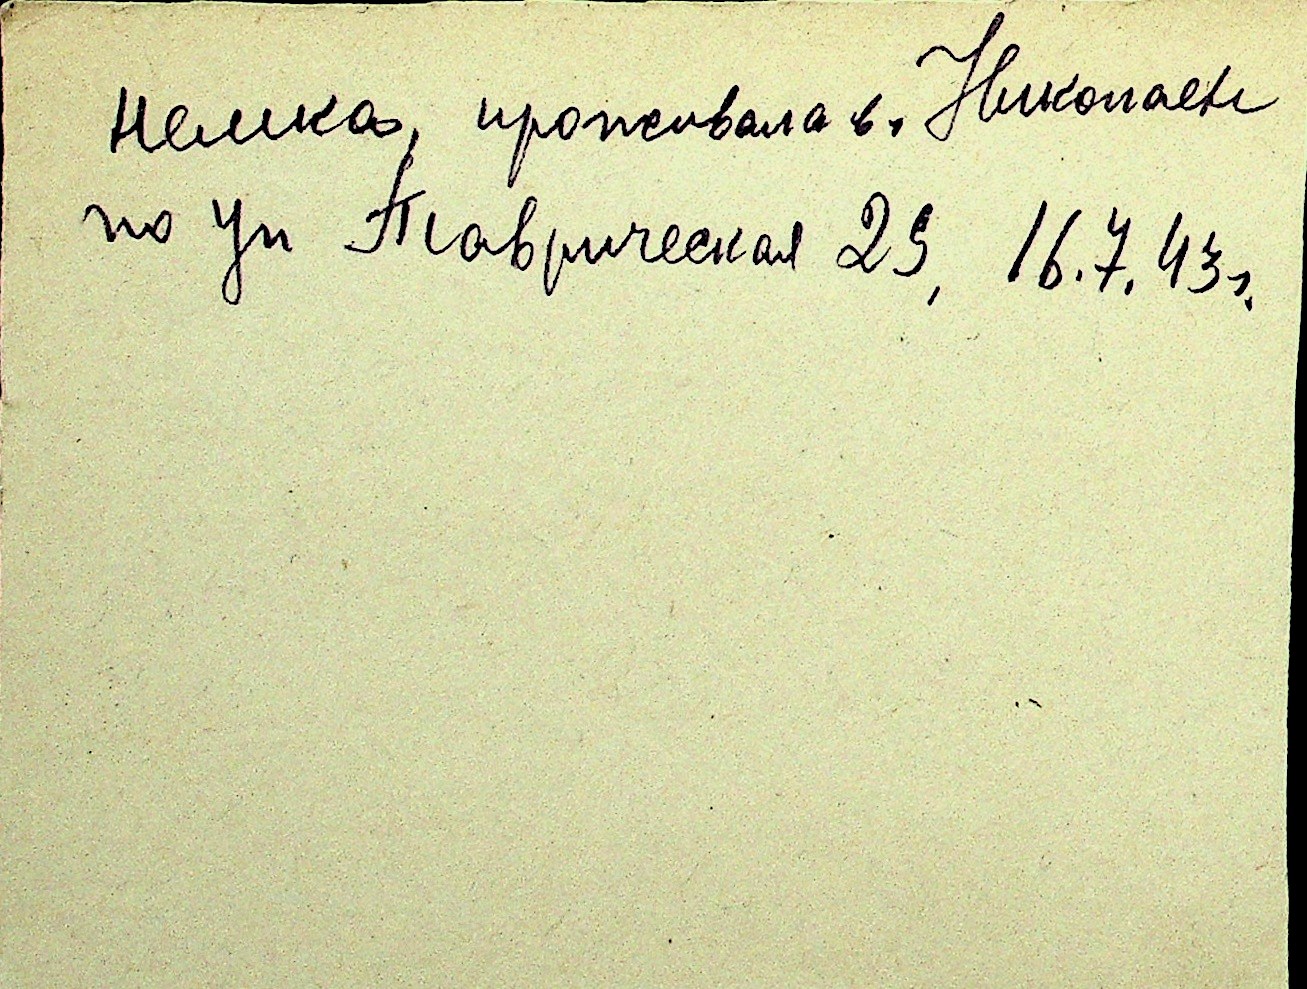 немка, проживала в г. Николаеве
по ул Таврическая 29, 16.7.43 г.